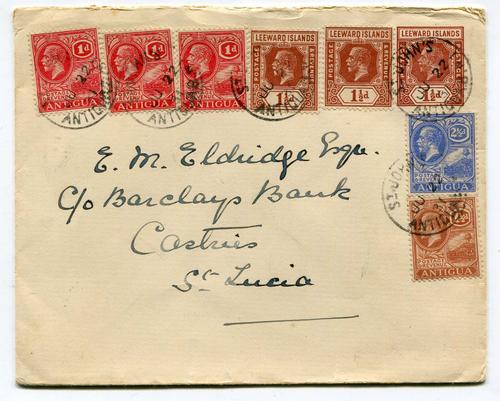 1d
ANTIGUA
1d
ANTIGUA
1d
ANTIGUA
LEEWARD ISLANDS
POSTAGE
REVENUE
1½d
LEEWARD ISLANDS
POSTAGE
REVENUE
1½d
LEEWARD ISLANDS
1½d
ST. JOHN'S
22
ANTIGUA
2½d
ANTIGUA
ANTIGUA
E. M. Eldridge Esqr.
C/o Barclays Bank
Castries
St Lucia